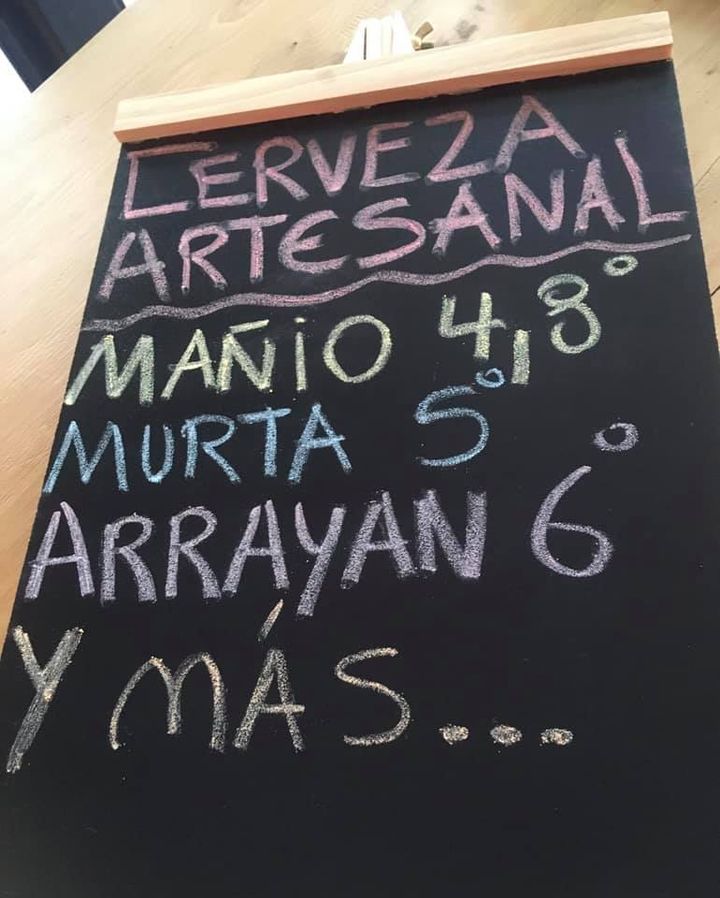 CERVEZA
ARTESANAL
MAÑIO 4,8°
MURTA 5°
ARRAYAN 6°
Y MÁS...